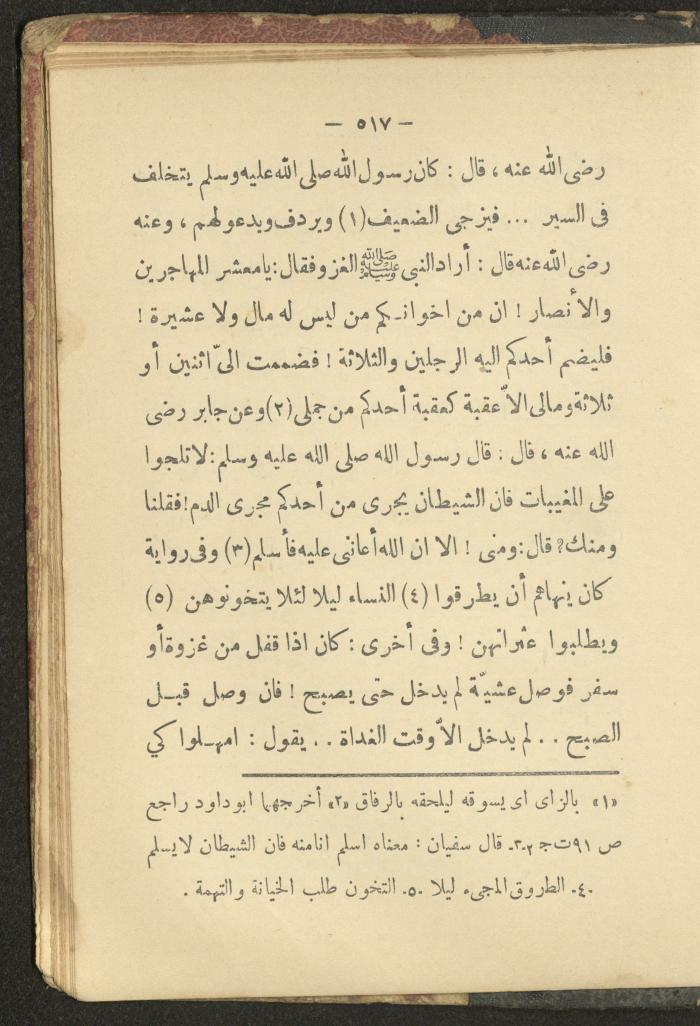 — ٥١٧ —
رضى الله عنه ، قال : كان رسول الله صلى الله عليه وسلم يتخلف
فى السير ... فيزجى الضعيف (١) ويردف ويدعو لهم ، وعنه
رضى الله عنه قال : أراد النبى ﷺ الغزو فقال : يا معشر المهاجرين
والأنصار ! ان من اخوانـكم من ليس له مال ولا عشيرة !
فليضم أحدكم اليه الرجلين والثلاثة ! فضممت الىّ اثنين أو
ثلاثة ومالى الاّ عقبة كعقبة أحدكم من جملى (٢) وعن جابر رضى
الله عنه ، قال : قال رسول الله صلى الله عليه وسلم : لا تلجوا
على المغيبات فان الشيطان يجرى من أحدكم مجرى الدم ! فقلنا
ومنك ? قال : ومنى ! الا ان الله أعاننى عليه فأسلم (٣) وفى رواية
كان ينهاهم أن يطرقوا (٤) النساء ليلا لئلا يتخونوهن (٥)
ويطلبوا عثراتهن ! وفى أخرى : كان اذا قفل من غزوة أو
سفر فوصل عشيّة لم يدخل حتى يصبح ! فان وصل قبـل
الصبح . . لم يدخل الاّ وقت الغداة . . يقول : امهـلوا كي
«١» بالزاى اى يسوقه ليلحقه بالرفاق «٢» أخرجهما ابو داود راجع
ص ٩١ ت ج ٢ -٣- قال سفيان : معناه اسلم انا منه فان الشيطان لا يسلم
-٤- الطروق المجىء ليلا -٥- التخون طلب الخيانة والتهمة .